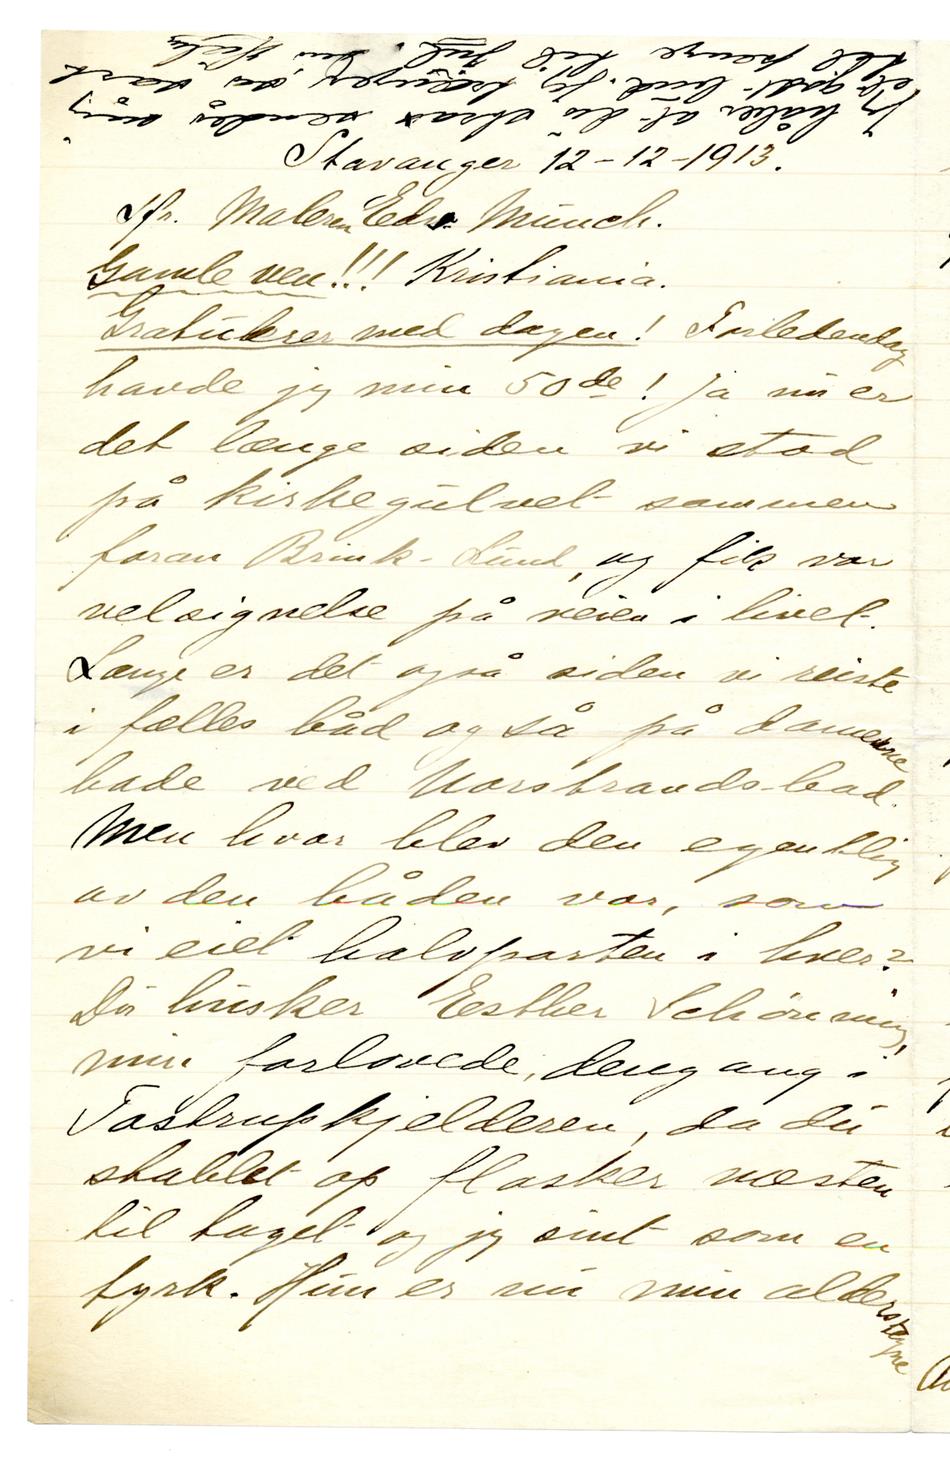 Jeg håber at du straks sender mig
et godt bud. Jeg trænger sa vart
til penge til Jul. Din
Stavanger 12-12-1913.
Hr. Maleren Edv. Münch.
Gamle ven!!! Kristiania.
Gratulerer med dagen! Forledendag
havde jeg min 50de! Ja nu er
det længe siden vi stod
på kirkegulvet sammen
foran Brink-Lund, og fik vor
velsignelse på veien i livet.
Længe er det også siden vi reiste
i fælles båd også på damerne
bade ved Norstrands-bad.
Men hvor blev den egentlig
av den båden vor, som
vi eiet halvparten i hver?
Du husker Eesther Schønning,
min forlovede, dengang i
Tostrupkjelderen, da du
stablet op flasker næsten
til taget og jeg sint som en
tyrk. Hun er nu min alderstegne